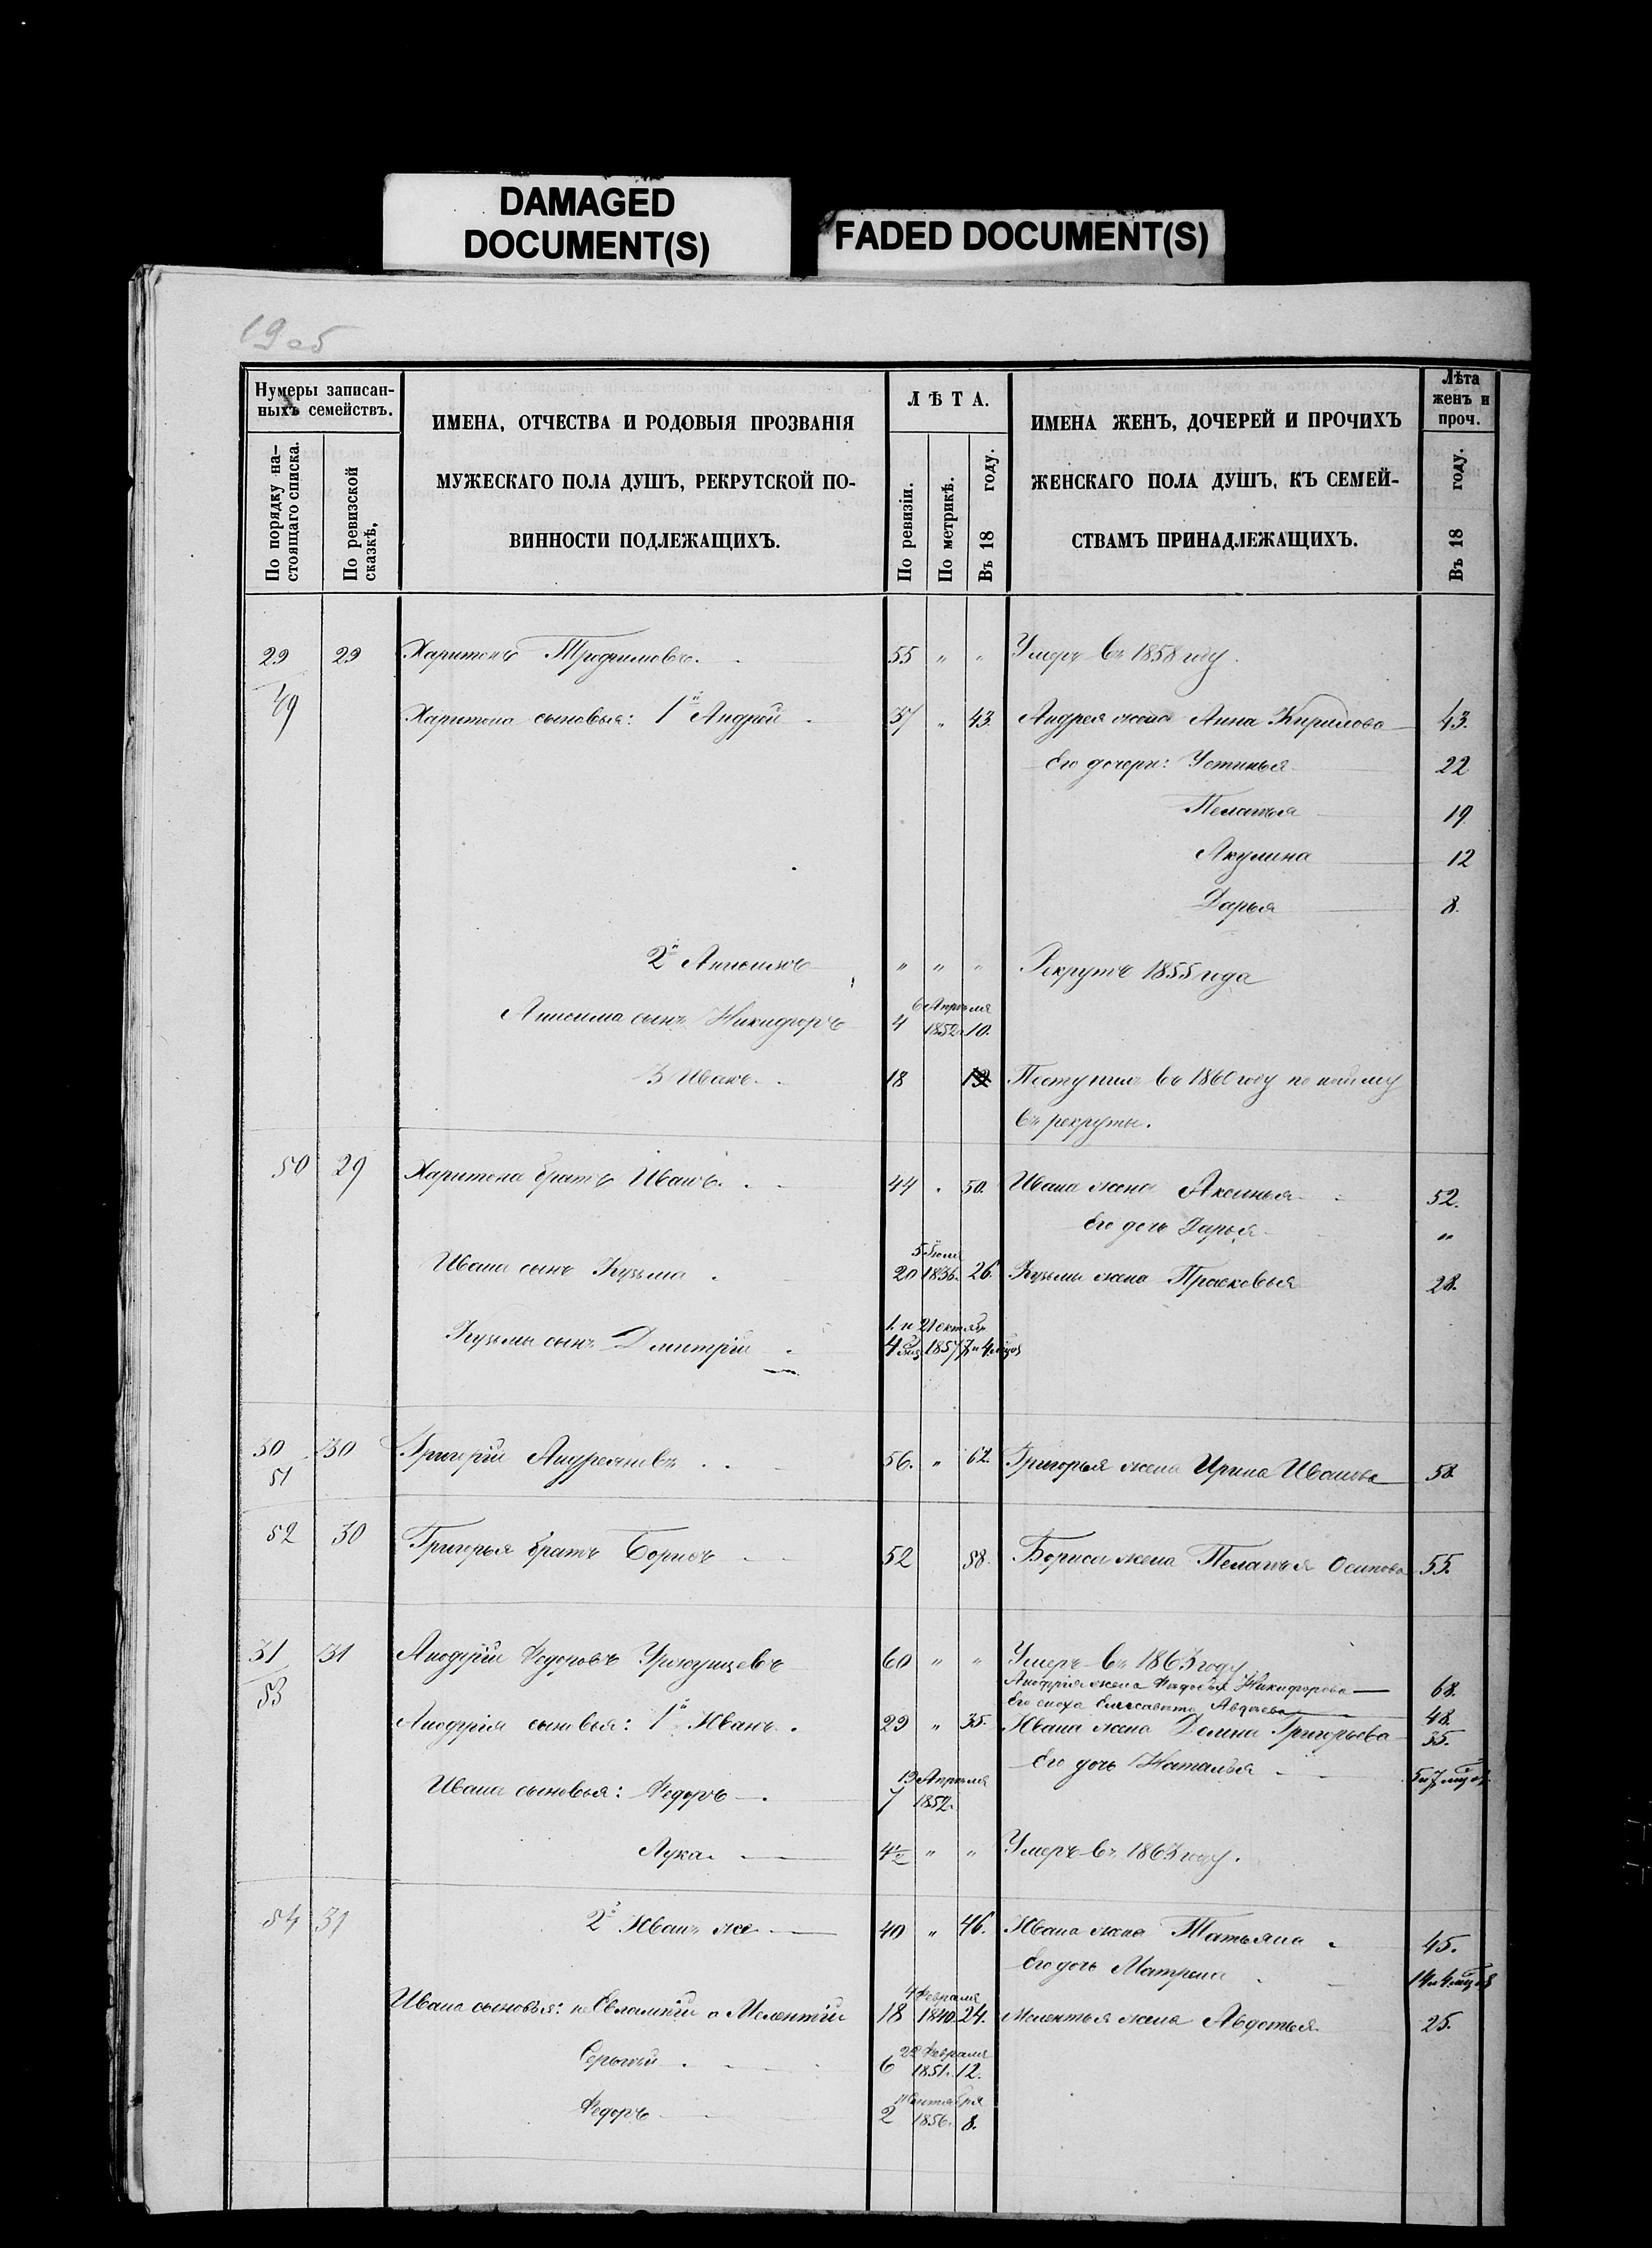 DAMAGED
DOCUMENT(S)
FADED DOCUMENT(S)
19 об
Нумеры записан-
ныхъ семействъ.
По порядку на-
стоящаго списка.
По ревизской
сказкѣ,
ИМЕНА, ОТЧЕСТВА И РОДОВЫЯ ПРОЗВАНІЯ
МУЖЕСКАГО ПОЛА ДУШЪ, РЕКРУТСКОЙ ПО-
ВИННОСТИ ПОДЛЕЖАЩИХЪ.
ЛѢТА.
По ревизіи.
По метрикѣ.
Въ 18 году.
ИМЕНА ЖЕНЪ, ДОЧЕРЕЙ И ПРОЧИХЪ
ЖЕНСКАГО ПОЛА ДУШЪ, КЪ СЕМЕЙ-
СТВАМЪ ПРИНАДЛЕЖАЩИХЪ.
Лѣта
женъ и
проч.
Въ 18 году.
29 29 Харитонъ Трофимовъ. 55 " " Умеръ въ 1858 году.
49 Харитона сыновья: 1й Андрей 37 " 43. Андрея жена Анна Кирилова 43.
Его дочери: Устинья 22
Пелагея 19
Акулина 12
Дарья 8.
2й Анисимъ " " " Рекрутъ 1855 года
Анисима сынъ Никифоръ 4 6 Апрѣля 1852 10.
3 Иванъ 18 Поступилъ въ 1860 году по найму
въ рекруты.
50 29 Харитона братъ Иванъ. 44 . 50. Ивана жена Аксинья 52.
Его дочь Дарья "
Ивана сынъ Кузьма 20 5 Іюля 1836. 26. Кузьмы жена Прасковья 28.
Кузьмы сынъ Дмитрій 1. и 4 21 октяб 1857
30 30 Григорій Андреяновъ 56. " 62. Григорья жена Ирина Иванова 58.
51
52 30 Григорья братъ Борисъ 52 58. Бориса жена Пелагея Осипова 55.
31 31 Анофрій Федоровъ 60 " " Умеръ въ 1863 году
53 Анофрія жена Никифорова 68.
Его сноха Елисавета Авдѣева 48.
Анофрія сыновья: 1й Иванъ. 29 " 35. Ивана жена Домна Григорьева 35.
Его дочь Наталья 5 и 7 мцов.
Ивана сыновья: Федоръ 7 19 Апрѣля 1852.
Лука. 4½ " " Умеръ въ 1863 году.
54 31 2й Иванъ же 40 " 46. Ивана жена Татьяна 45.
Его дочь Матрена 14 и 4 мцов
Ивана сыновья: Евлампій а Мелентій 18 4 Февраля 1840. 24. Мелентья жена Авдотья 25.
Сергѣй 6 22 Февраля 1851. 12.
Федоръ 2 Сентября 1856. 8.